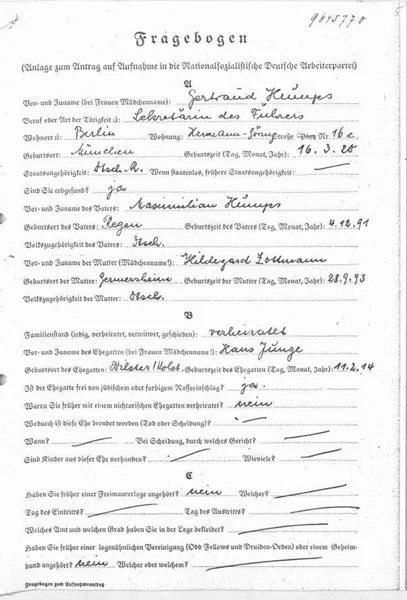 9615770
Fragebogen
(Anlage zum Antrag auf Aufnahme in die Nationalsozialistische Deutsche Arbeiterpartei)
A
Vor- und Zuname (bei Frauen Mädchenname): Gertraud Humps
Beruf oder Art der Tätigkeit: Sekretärin des Führers
Wohnort: Berlin Wohnung: Hermann-Göringstraße Nr. 16 c
Geburtsort: München Geburtszeit (Tag, Monat, Jahr): 16. 3. 20
Staatsangehörigkeit: Dtsch. R. Wenn staatenlos, frühere Staatsangehörigkeit:
Sind Sie erbgesund? ja
Vor- und Zuname des Vaters: Maximilian Humps
Geburtsort des Vaters: Regen Geburtszeit des Vaters (Tag, Monat, Jahr): 4. 12. 91
Volkszugehörigkeit des Vaters: Dtsch.
Vor- und Zuname der Mutter (Mädchenname!): Hildegard Zottmann
Geburtsort der Mutter: Germersheim Geburtszeit der Mutter (Tag, Monat, Jahr): 28. 9. 93
Volkszugehörigkeit der Mutter: Dtsch.
B
Familienstand (ledig, verheiratet, verwitwet, geschieden): verheiratet
Vor- und Zuname des Ehegatten (bei Frauen Mädchenname!): Hans Junge
Geburtsort des Ehegatten: Wilster/Holst. Geburtszeit des Ehegatten (Tag, Monat, Jahr): 11. 2. 14
Ist der Ehegatte frei von jüdischem oder farbigem Rasseeinschlag? ja.
Waren Sie früher mit einem nichtarischen Ehegatten verheiratet? nein
Wodurch ist diese Ehe beendet worden (Tod oder Scheidung)?
Wann? Bei Scheidung, durch welches Gericht?
Sind Kinder aus dieser Ehe vorhanden? Wieviele?
C
Haben Sie früher einer Freimaurerloge angehört? nein Welcher?
Tag des Eintritts? Tag des Austritts?
Welches Amt und welchen Grad haben Sie in der Loge bekleidet?
Haben Sie früher einer logenähnlichen Vereinigung (Odd Fellows und Druiden-Orden) oder einem Geheim-
bund angehört? nein Welcher oder welchem?
Fragebogen zum Aufnahmeantrag